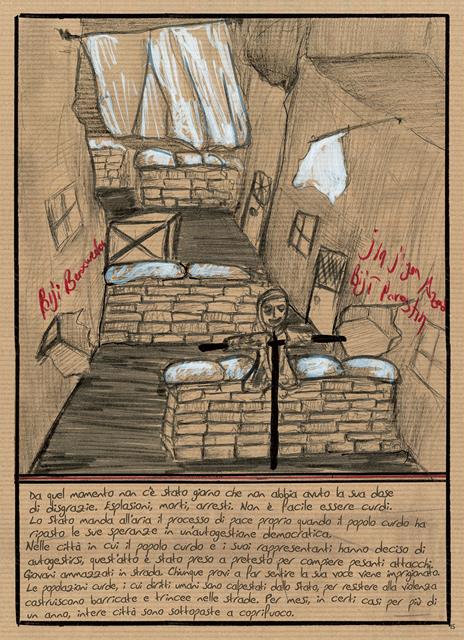 Biji Berxwedan
Jin Jiyan Azadî
Bijî Parastin
Da quel momento non c'è stato giorno che non abbia avuto la sua dose
di disgrazie. Esplosioni, morti, arresti. Non è facile essere curdi.
Lo Stato manda all'aria il processo di pace proprio quando il popolo curdo ha
riposto le sue speranze in un'autogestione democratica.
Nelle città in cui il popolo curdo e i suoi rappresentanti hanno deciso di
autogestirsi, quest'atto è stato preso a pretesto per compiere pesanti attacchi.
Giovani ammazzati in strada. Chiunque provi a far sentire la sua voce viene imprigionato.
Le popolazioni curde, i cui diritti umani sono calpestati dallo Stato, per resistere alla violenza
costruiscono barricate e trincee nelle strade. Per mesi, in certi casi per più di
un anno, intere città sono sottoposte a coprifuoco.